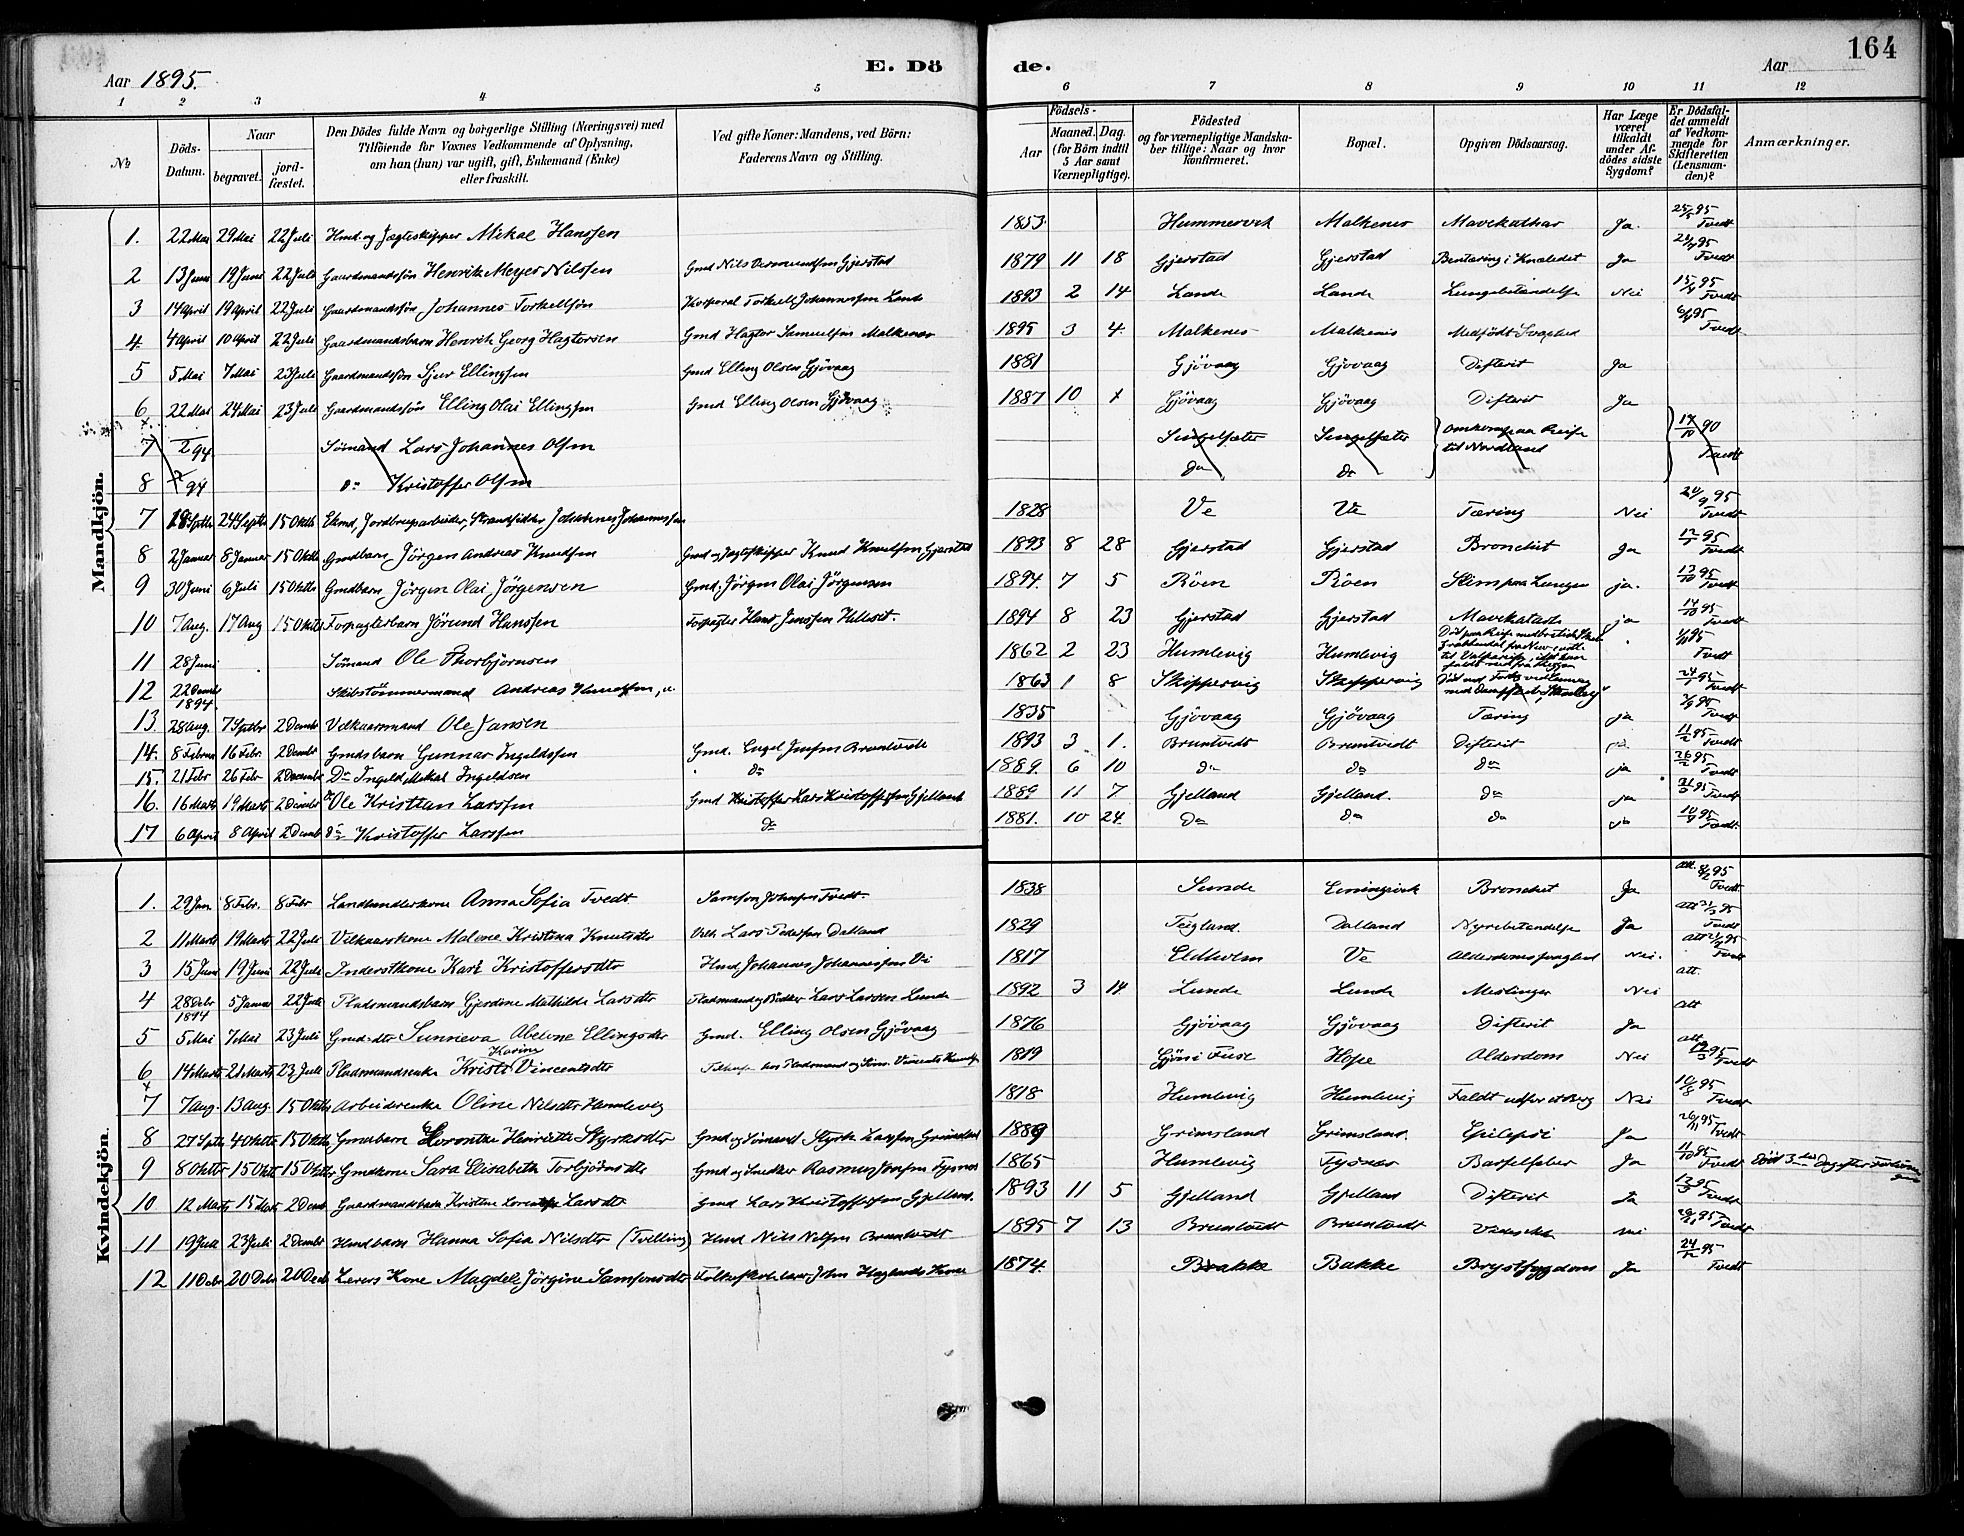 164
Aar 1895.
E. Dö de.
Aar
1 2 3 4 5 6 7 8 9 10 11 12
No
Döds-Datum.
Naar
begravet. jord-fæstet.
Den Dödes fulde Navn og borgerlige Stilling (Næringsvei) med
Tilföiende for Voxnes Vedkommende af Oplysning,
om han (hun) var ugift, gift, Enkemand (Enke)
eller fraskilt.
Ved gifte Koner: Mandens, ved Börn:
Faderens Navn og Stilling.
Födsels-
Aar
Maaned. Dag.
(for Börn indtil 5 Aar samt Værnepligtige).
Födested
og for værnepligtige Mandskaber tillige: Naar og hvor konfirmeret.
Bopæl.
Opgiven Dödsaarsag.
Har Læge været tilkaldt under Afdödes sidste Sygdom?
Er Dödsfaldet anmeldt af Vedkommende for Skifteretten (Lensmanden)?
Anmærkninger.
Mandkjön.
1. 22 Mai 29 Mai 22 Juli Hmd. og Jægteskipper Mikal Hanssen 1853 Hummervik Malkenes Mavekathar Ja. 25/5 95 Tvedt
2 13 Juni 19 Juni 22 Juli Gaardmandssön Henrik Meyer Nilssen Gmd Nils Gjerstad 1879 11 18 Gjerstad Gjerstad i Knæledet Ja 95 Tvedt
3 14 April 19 April 22 Juli Gaardmandssön Johannes Torkellsön Korporal Torkell Johannessen Lande 1893 2 14 Lande Lande Lungebetændelse Nei 15/4 95 Tvedt
4. 4 April 10 April 22 Juli Gaardmandsbarn Henrik Georg Hagtorsen Gmd Hagtor Samuelsen Malkenes 1895 3 4. Malkenes Malkenes Medfödt Svaghed 6/4 95 Tvedt
5 5 Mai 7 Mai 23 Juli Gaardmandssön Sjur Ellingsen Gmd Elling Olsen Gjövaag 1881 Gjövaag Gjövaag Difterit Ja
6 22 Mai 24 Mai 23 Juli Gaardmandssön Elling Olai Ellingsen Gmd Elling Olsen Gjövaag 1887 10 Gjövaag Gjövaag Difterit Ja
7 94 Sömand Lars Johannes Olsen Omkom paa Reise til Nordland Tvedt
8 94 do Kristoffer Olsen do do
7 24 Septb 15 Oktb Johannes Johannessen 1828 Ve Ve Tæring Nei 95 Tvedt
8 2 Januar 8 Januar 15 Oktb Gmdbarn Jörgen Andreas Knudsen Gmd og Jægteskipper Knud Knudsen Gjerstad 1893 8 28 Gjerstad Gjerstad Bronchit Ja 95 Tvedt
9 30 Juni 6 Juli 15 Oktb Gmdbarn Jörgen Olai Jörgensen Gmd; Jörgen Olai Jörgensen 1894. 7 5 Röen Röen Slim paa Lungen ja. 95 Tvedt
10 7 Aug. 17 Aug 15 Oktb Forpagterbarn Jörund Hanssen Forpagter Hans Jenssen 1894 8 23 Gjerstad Gjerstad Mavekatarh ja 95 Tvedt
11 28 Juni Sömand Ole Thorbjörnsen 1862 2 23 Humlevig Humlevig 95 Tvedt
12 22 Decemb 1894. Skibstömmermand Andreas 1863 1 8 Skippervig Skippervig 95 Tvedt
13. 28 Aug. 7 Septbr 2 Decemb Velkaarsmand Ole Jansen 1835 Gjövaag Gjövaag Tæring ja 95 Tvedt
14. 8 Februar 16 Febr. 2 Decemb Gmdsbarn Gunnar Ingeldssen Gmd. Brunlvedt 1893 3 1. Brunlvedt Brunlvedt Difterit ja 11/2 95 Tvedt
15. 21 Febr 26 Febr 2 Decemb Do Ingeld Mikal Ingeldsen do 1889. 6 10 do do do ja 26/2 95 Tvedt
16. 16 Marts 19 Marts 2 Decemb do Ole Kristian Larssen Gmd Lars Kristoffersen Gjelland 1889 11 7 Gjelland Gjelland. do ja 95 Tvedt
17 6 April 8 April 2 Decemb do Kristoffer Larssen do 1881. 10 24. do do do ja 95 Tvedt.
Kvindekjön.
1. 29 Jan 8 Febr. 8 Febr Landhandlerkone Anna Sofia Tvedt Samson Johnsen Tvedt. 1838 Sunde Bronchit Ja att. 8/2 95 Tvedt
2 11 Marts 19 Marts 22 Juli Vilkaarskone Malene Kristina Knutsdtr Lars Pedersen Dalland 1829 Teigland Dalland Nyrebetændelse Ja att 95 Tvedt
3 15 Juni 19 Juni 22 Juli Inderstkone Kari Kristoffersdtr Hmd Johannes Johannessen Ve 1817 Eldholm Ve Alderdomssvaghed Nei. att 95 Tvedt
4 28 Debr 1894 5 Januar 22 Juli Pladsmandsbarn Gjerdine Mathilde Larsdtr Pladsmand og Bödker Lars Larsen Lunde 1892 3 14 Lunde Lunde Meslinger Nei att.
5 5 Mai 7 Mai 23 Juli Gmd-dtr Sunneva Abeline Ellingsdtr Gmd. Elling Olsen Gjövaag 1876 Gjövaag Gjövaag Difterit Ja att
6 14 Marts 21 Marts 23 Juli Pladsmandsenke Kristi Karine Vincentsdtr 1819 Gjön i Fuse Hope Alderdom Nei att 95 Tvedt
7 7 Aug. 13 Aug. 15 Oktb Arbeiderenke Oline Nilsdtr Humlevig 1818 Humlevig Humlevig Faldt udfor et Berg Nei 10/8 95 Tvedt
8 27 Septb 4 Oktb 15 Oktb Gmdbarn Henriette Styrksdtr Gmd og Sömand Styrk Larssen Grimsland 1889 Grimsland Grimsland. Epilepsi Ja 95 Tvedt
9 8 Oktb 15 Oktb 15 Oktb Gmdkone Sara Elisabeth Torbjörnsdtr Gmd og Snedker Rasmus Jensen Tysnes 1865 Humlevig Tysnes Barselfeber Ja 11/10 95 Tvedt Död 3die Dag efter
10 12 Marts 15 Marts 2 Decemb Gaardmandsbarn Kristine Larsdtr Gmd Lars Kristoffersen Gjelland. 1893 11 5 Gjelland Gjelland Difterit Ja 95 Tvedt
11 19 Juli 23 Juli 2 Decembr Hmdbarn Hanna Sofia Nilsdtr (Tvilling) Hmd Nils Nilsen Brunlvedt 1895 7 13 Brunlvedt Brunlvedt nei 95 Tvedt
12 11 Debr 20 Debr 20 Decb Lærers Kone Magdel Jörgine Samsonsdtr Kone 1874. Bakke Bakke Brystsygdom Ja 24/12 95 Tvedt